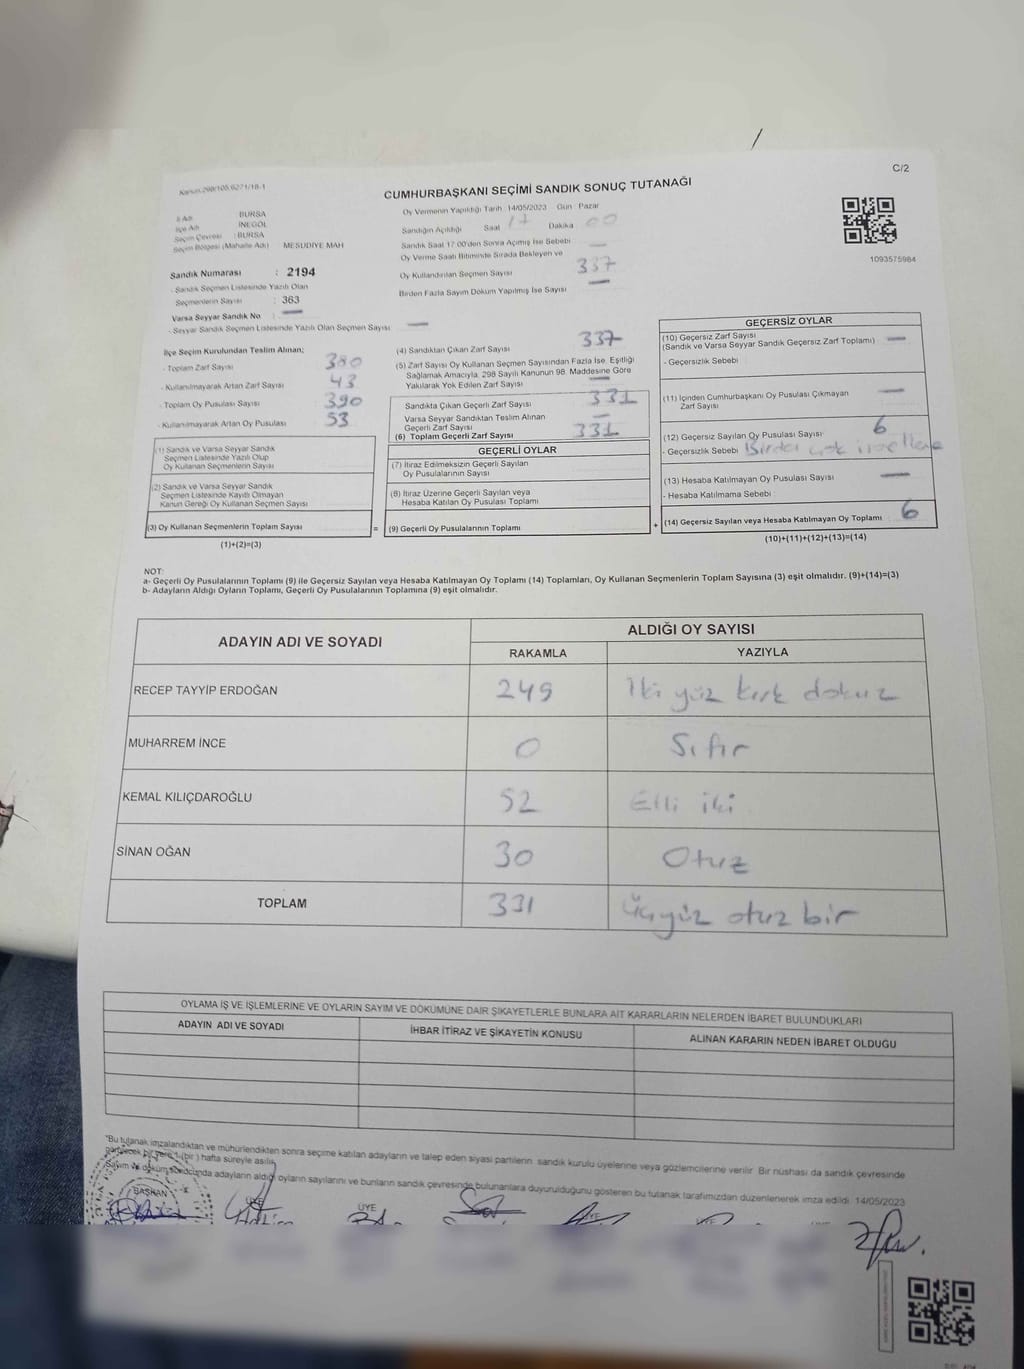 Kanun 298/105.6271/18-1
C/2
CUMHURBAŞKANI SEÇİMİ SANDIK SONUÇ TUTANAĞI
İl Adı : BURSA
İlçe Adı : İNEGÖL
Seçim Çevresi : BURSA
Seçim Bölgesi (Mahalle Adı) MESUDİYE MAH
Sandık Numarası : 2194
- Sandık Seçmen Listesinde Yazılı Olan
Seçmenlerin Sayısı : 363
Varsa Seyyar Sandık No : —
- Seyyar Sandık Seçmen Listesinde Yazılı Olan Seçmen Sayısı —
Oy Vermenin Yapıldığı Tarih 14/05/2023 Gün : Pazar
Sandığın Açıldığı Saat 17 Dakika 00
Sandık Saat 17:00'den Sonra Açılmış İse Sebebi —
Oy Verme Saati Bitiminde Sırada Bekleyen ve
Oy Kullandırılan Seçmen Sayısı 337
Birden Fazla Sayım Döküm Yapılmış İse Sayısı —
1093575984
İlçe Seçim Kurulundan Teslim Alınan;
- Toplam Zarf Sayısı 380
- Kullanılmayarak Artan Zarf Sayısı 43
- Toplam Oy Pusulası Sayısı 390
- Kullanılmayarak Artan Oy Pusulası 53
(1) Sandık ve Varsa Seyyar Sandık
Seçmen Listesinde Yazılı Olup
Oy Kullanan Seçmenlerin Sayısı
(2) Sandık ve Varsa Seyyar Sandık
Seçmen Listesinde Kayıtlı Olmayan
Kanun Gereği Oy Kullanan Seçmen Sayısı
(3) Oy Kullanan Seçmenlerin Toplam Sayısı
(1)+(2)=(3)
=
(4) Sandıktan Çıkan Zarf Sayısı 337
(5) Zarf Sayısı Oy Kullanan Seçmen Sayısından Fazla İse, Eşitliği
Sağlamak Amacıyla, 298 Sayılı Kanunun 98. Maddesine Göre
Yakılarak Yok Edilen Zarf Sayısı —
Sandıkta Çıkan Geçerli Zarf Sayısı 331
Varsa Seyyar Sandıktan Teslim Alınan
Geçerli Zarf Sayısı —
(6) Toplam Geçerli Zarf Sayısı 331
GEÇERLİ OYLAR
(7) İtiraz Edilmeksizin Geçerli Sayılan
Oy Pusulalarının Sayısı
(8) İtiraz Üzerine Geçerli Sayılan veya
Hesaba Katılan Oy Pusulası Toplamı
(9) Geçerli Oy Pusulalarının Toplamı
+
GEÇERSİZ OYLAR
(10) Geçersiz Zarf Sayısı
(Sandık ve Varsa Seyyar Sandık Geçersiz Zarf Toplamı) —
- Geçersizlik Sebebi :
(11) İçinden Cumhurbaşkanı Oy Pusulası Çıkmayan
Zarf Sayısı —
(12) Geçersiz Sayılan Oy Pusulası Sayısı 6
- Geçersizlik Sebebi Birden çok
(13) Hesaba Katılmayan Oy Pusulası Sayısı —
- Hesaba Katılmama Sebebi :
(14) Geçersiz Sayılan veya Hesaba Katılmayan Oy Toplamı 6
(10)+(11)+(12)+(13)=(14)
NOT:
a- Geçerli Oy Pusulalarının Toplamı (9) ile Geçersiz Sayılan veya Hesaba Katılmayan Oy Toplamı (14) Toplamları, Oy Kullanan Seçmenlerin Toplam Sayısına (3) eşit olmalıdır. (9)+(14)=(3)
b- Adayların Aldığı Oyların Toplamı, Geçerli Oy Pusulalarının Toplamına (9) eşit olmalıdır.
ADAYIN ADI VE SOYADI
ALDIĞI OY SAYISI
RAKAMLA YAZIYLA
RECEP TAYYİP ERDOĞAN 249 İki yüz kırk dokuz
MUHARREM İNCE 0 Sıfır
KEMAL KILIÇDAROĞLU 52 Elli iki
SİNAN OĞAN 30 Otuz
TOPLAM 331 Üçyüz otuz bir
OYLAMA İŞ VE İŞLEMLERİNE VE OYLARIN SAYIM VE DÖKÜMÜNE DAİR ŞİKAYETLERLE BUNLARA AİT KARARLARIN NELERDEN İBARET BULUNDUKLARI
ADAYIN ADI VE SOYADI İHBAR İTİRAZ VE ŞİKAYETİN KONUSU ALINAN KARARIN NEDEN İBARET OLDUĞU
"Bu tutanak imzalandıktan ve mühürlendikten sonra seçime katılan adayların ve talep eden siyasi partilerin sandık kurulu üyelerine veya gözlemcilerine verilir. Bir nüshası da sandık çevresinde
yere 1 (bir) hafta süreyle asılır.
Sayım ve döküm sonucunda adayların aldığı oyların sayılarını ve bunların sandık çevresinde bulunanlara duyurulduğunu gösteren bu tutanak tarafımızdan düzenlenerek imza edildi. 14/05/2023
BAŞKAN ÜYE ÜYE ÜYE ÜYE